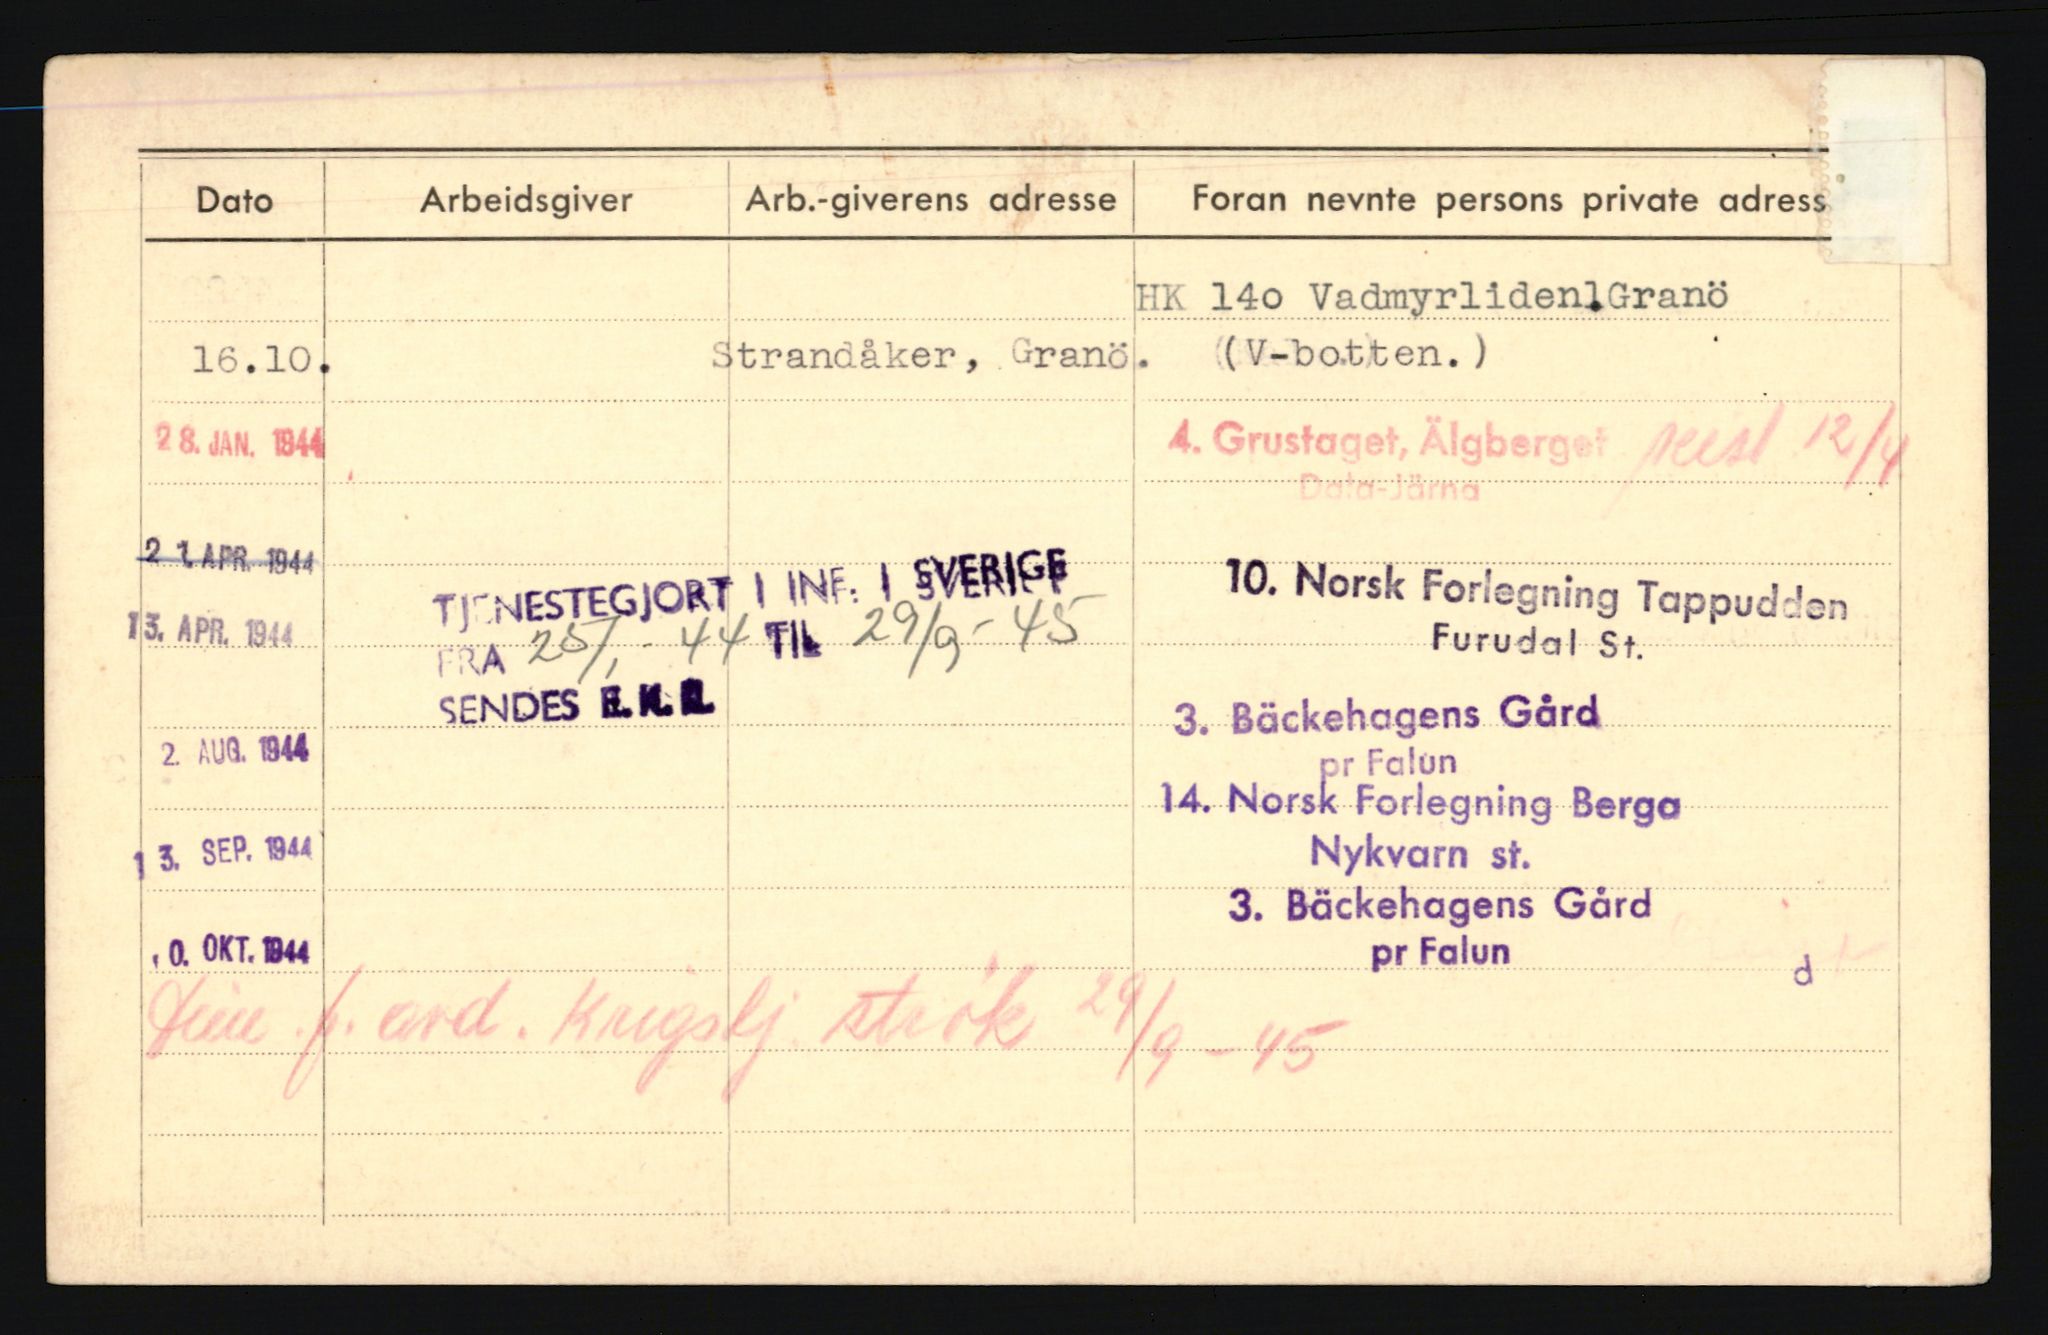 Dato Arbeidsgiver Arb.-giverens adresse Foran nevnte persons private adress
HK 14o Vadmyrliden1.Granö
16.10. Strandåker, Granö. (V-botten.)
28. JAN. 1944 4. Grustaget, Älgberget reist 12/4
Dala-Järna
21. APR. 1944
10. Norsk Forlegning Tappudden
Furudal St.
13. APR. 1944
TJENESTEGJORT I INF. I SVERIGE
FRA 25/1 - 44 TIL 29/9 - 45
SENDES
3. Bäckehagens Gård
pr Falun
2. AUG. 1944
14. Norsk Forlegning Berga
Nykvarn st.
13. SEP. 1944
3. Bäckehagens Gård
pr Falun
0. OKT. 1944
d
p. avd. 29/9 - 45